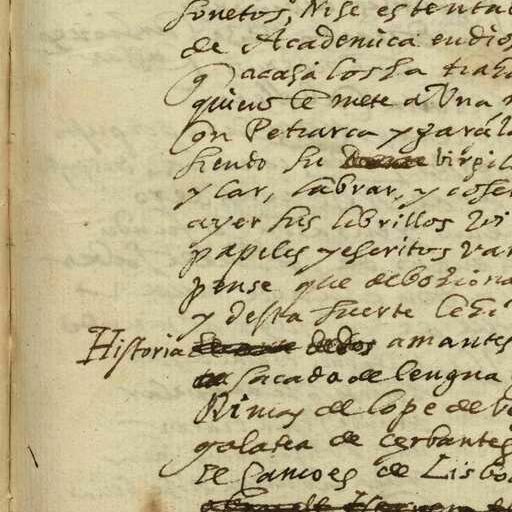 sonetos, Ni se es tenta
de Academica en dio
q acasa los ha trah
quien se mete a Una
on Petrarca y gara
siendo su virgil
y lar, labrar, y coser
ayer sus librillos
papeles y escritos var
pense que deboziona
y desta suerte
Historia de dos amantes
sacada de lengua
Rimas de lope de ve
galatea de cerbantes
de Camoes de Lisbo